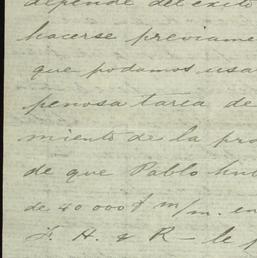 depende del exito
hacerse previame
que podamos usar
penosa tarea de
miento de la pro
de que Pablo hub
de 40 000 $ m/m. en
F. H. & R — le p